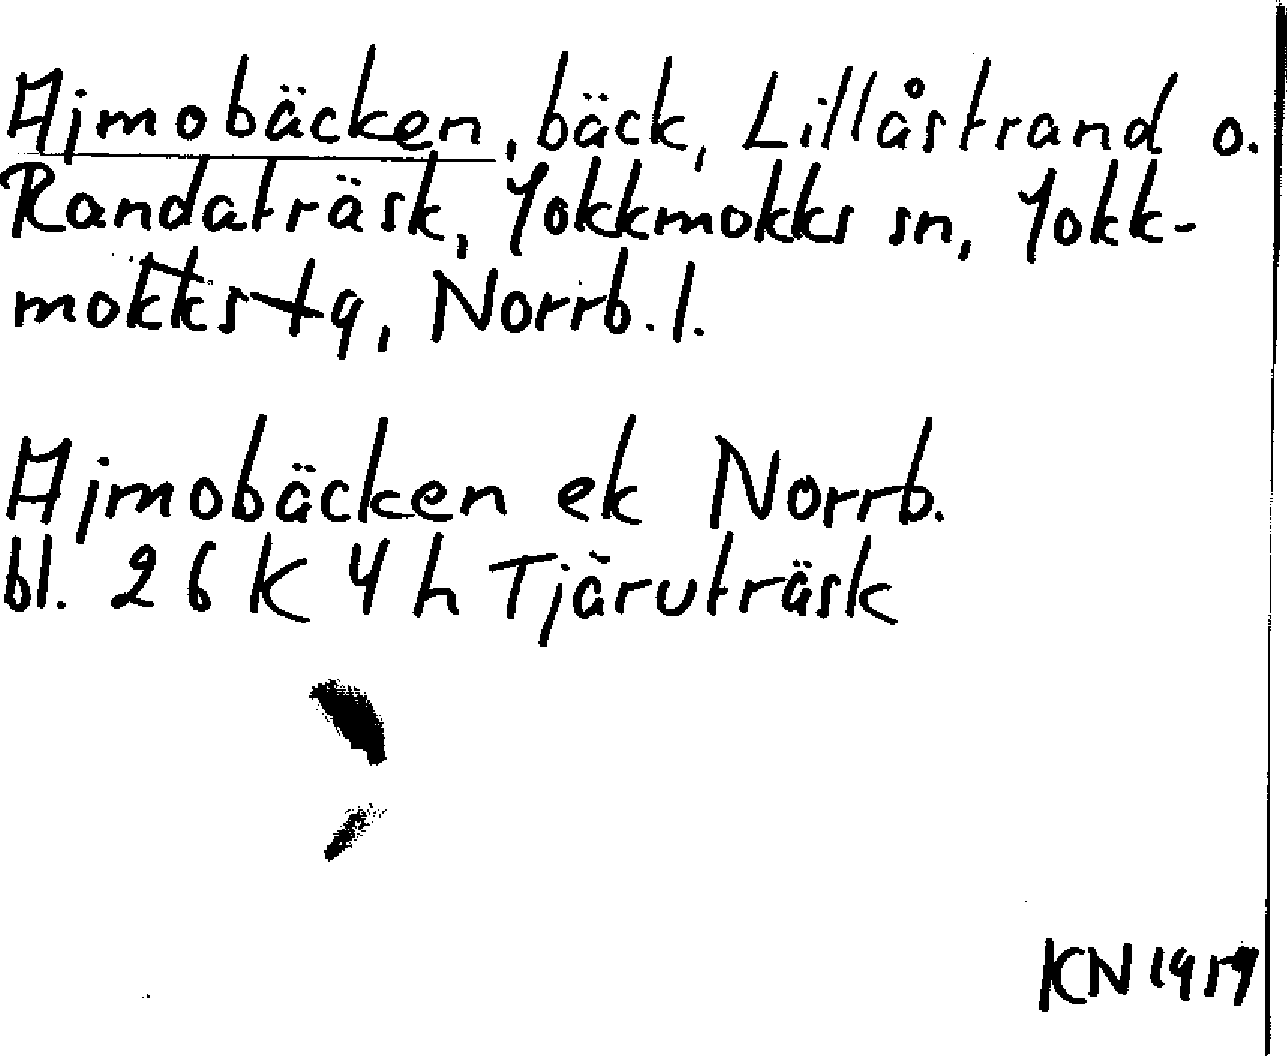 Ajmobäcken, bäck, Lillåstrand o.
Randaträsk, Jokkmokks sn, Jokk-
mokks tg, Norrb. l.
Ajmobäcken ek Norrb.
bl. 26 K 4 h Tjäruträsk
KN 1959